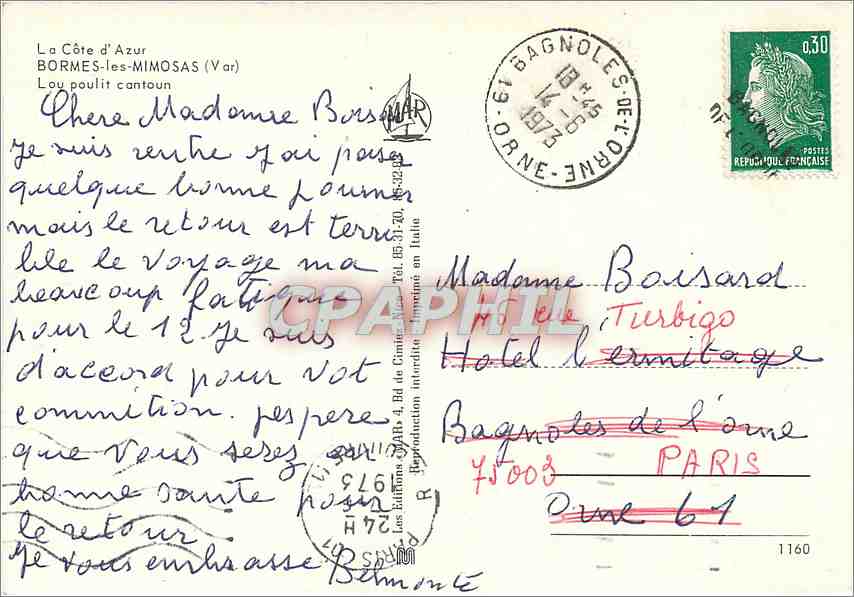 La Côte d'Azur
BORMES-les-MIMOSAS (Var)
Lou poulit cantoun
MAR
Chere Madame Boisa
Je suis rentre J'ai passer
quelque bonne journer
mais le retour est terri
ble le voyage ma
beaucoup fatigue
pour le 12 Je suis
d'accord pour vot
commition. jespere
que vous serez en
bonne sante pour
le retour
Je vous embrasse Belmonte
Les Editions «MAR» 4, Bd de Cimiez - Nice - Tél. 85-31-70, 85-32-82
Reproduction interdite - Imprimé en Italie
61 BAGNOLES-DE-L'ORNE
ORNE
18 H 45
14 - 6
1973
0,30
POSTES
REPUBLIQUE FRANÇAISE
BAGNOLES
DE L'ORNE
Madame Boisard
rue Turbigo
Hotel l'ermitage
Bagnoles de l'orne
75003 PARIS
Orne 61
PARIS
24 H
1973
1160
CPAPHIL